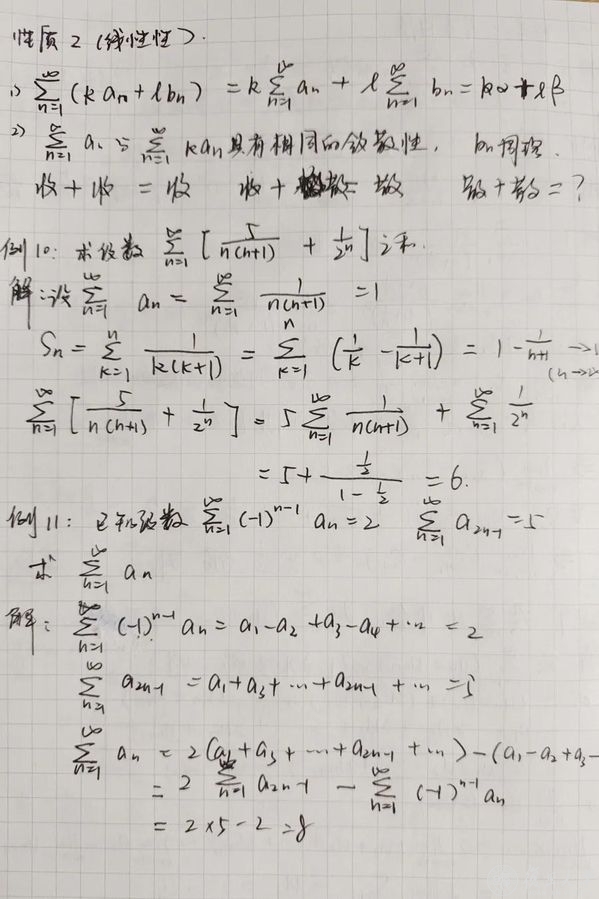 性质 2 (线性性).
1) ∑_{n=1}^{∞} (k aₙ + l bₙ) = k ∑_{n=1}^{∞} aₙ + l ∑_{n=1}^{∞} bₙ = kα + lβ
2) ∑_{n=1}^{∞} aₙ 与 ∑_{n=1}^{∞} kaₙ 具有相同的敛散性, bₙ 同理.
收 + 收 = 收 收 + 散 = 散 散 + 散 = ?
例10: 求级数 ∑_{n=1}^{∞} [ 5/(n(n+1)) + 1/2ⁿ ] 之和.
解: 设 ∑_{n=1}^{∞} aₙ = ∑_{n=1}^{∞} 1/(n(n+1)) = 1
Sₙ = ∑_{k=1}^{n} 1/(k(k+1)) = ∑_{k=1}^{n} (1/k - 1/(k+1)) = 1 - 1/(n+1) → 1
(n→∞
∑_{n=1}^{∞} [ 5/(n(n+1)) + 1/2ⁿ ] = 5 ∑_{n=1}^{∞} 1/(n(n+1)) + ∑_{n=1}^{∞} 1/2ⁿ
= 5 + (1/2)/(1 - 1/2) = 6.
例11: 已知级数 ∑_{n=1}^{∞} (-1)^{n-1} aₙ = 2 ∑_{n=1}^{∞} a_{2n-1} = 5
求 ∑_{n=1}^{∞} aₙ
解: ∑_{n=1}^{∞} (-1)^{n-1} aₙ = a₁ - a₂ + a₃ - a₄ + ... = 2
∑_{n=1}^{∞} a_{2n-1} = a₁ + a₃ + ... + a_{2n-1} + ... = 5
∑_{n=1}^{∞} aₙ = 2(a₁ + a₃ + ... + a_{2n-1} + ...) - (a₁ - a₂ + a₃ -
= 2 ∑_{n=1}^{∞} a_{2n-1} - ∑_{n=1}^{∞} (-1)^{n-1} aₙ
= 2×5 - 2 = 8